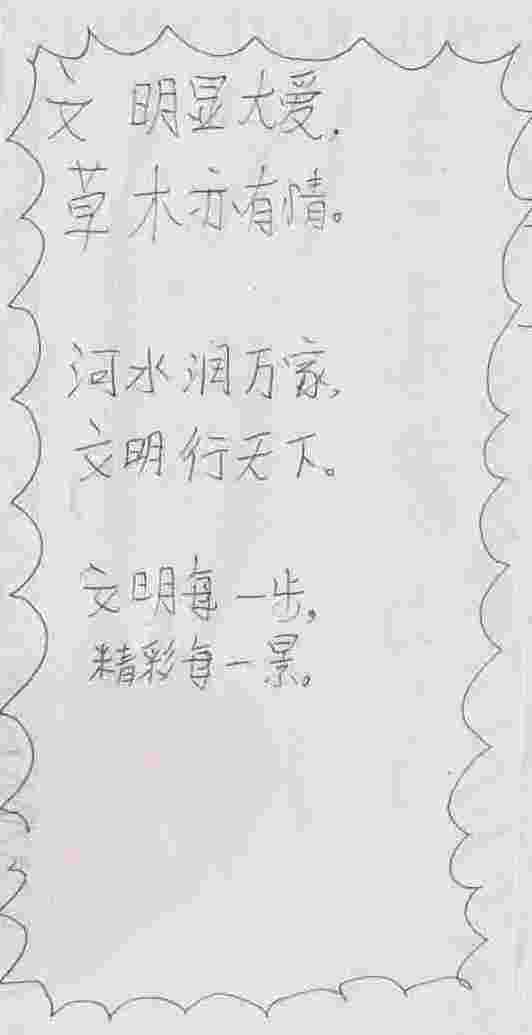 文明显大爱,
草木亦有情。
河水润万家,
文明行天下。
文明每一步,
精彩每一景。